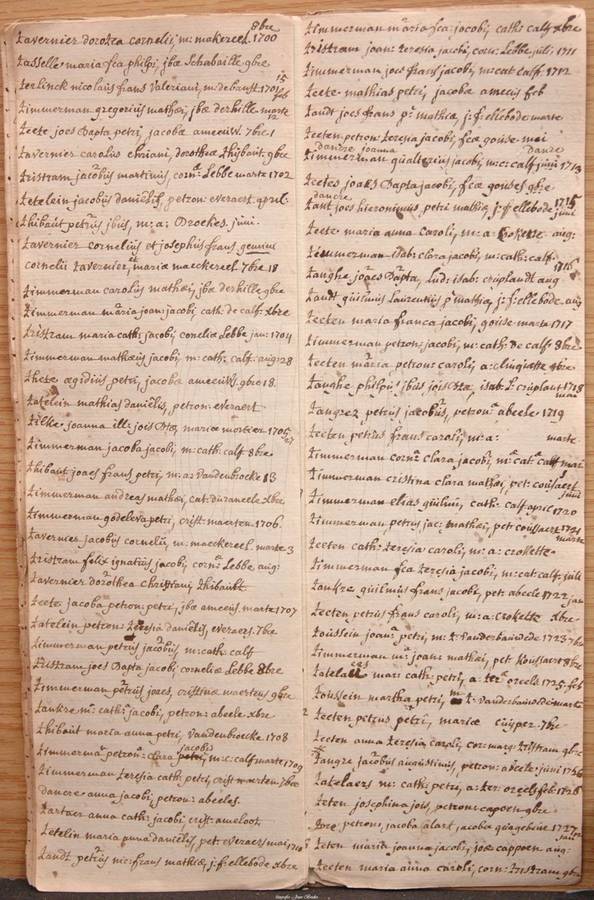 8bre
tavernier dorothea cornelii, m: makereel. 1700
tasselle maria fca philpi, jbæ Schabaille 9bre
terlinck nicolaus frans Valeriani, m: debrust 1701
timmerman gregorius mathæi, jbæ derhille marte
teete joes Bapta petri, jacoba ameeuw. 7bre.1
tavernier carolus chriani, dorothea thijbaut. 9bre
tristram jacobus martinus, corn: Lebbe marte 1702
tetelein jacobus danielis, petron: everaert. april:
thibaut petrus jbus, m: a: Broekes. juni.
tavernier cornelius et josephus frans gemini
cornelii tavernier, et maria maeckereel. 7bre 18
timmerman carolus mathæi, jbæ derhille 9bre
timmerman maria joan: jacobi, cath: de calf: xbre
tristram maria cath: jacobi, cornelia Lebbe jan: 1704
timmerman mathæus jacobi, m: cath: calf: aug: 28
thete ægidius petri, jacoba ameeuw. 9bre 18.
tatelein mathias danielis, petron: everaert
tilke joanna ill: jois Bta, mariæ mortier 1705
timmerman jacoba jacobi, m: cath: calf 8bre
thibaut joaes frans petri, m: a: Vandenbroeke 13
timmerman andreas mathæi, cat: duraneele xbre
timmerman godeleva petri, crist: maerten. 1706.
tavernier jacobus cornelii, m: maeckereel. marte 3
tristram felix ignatius jacobi, corn: Lebbe aug:
tavernier dorothea christiani thibault
teete jacoba petron: petri, jbæ ameeus. marte 1707
tatelein petron: teresia danielis, everaers. 7bre
timmerman petrus jacobus, m: cath: calf
tristram joes Bapta jacobi, cornelia Lebbe 8bre
timmerman petrus joaes, cristina maertens 9bre
tankre m: cath: jacobi, petron: abeele. xbre
thibaut maria anna petri, Vandenbroecke 1708
jacobi
timmerman petron: clara petri, m: c: calf marte 1709
timmerman teresia cath: petri, crist: maerten. 7bre
dancre anna jacobi, petron: abeeles.
tartaer anna cath: jacobi crist: ameloot,
tetelin maria anna danielis, pet: everaers mai, 1710
tandt petrus nic: frans mathiæ, j: f: ellebode xbre
timmerman maria fca: jacobi, cath: calf xbre
tristram joan: teresia jacobi, corn: Lebbe juli: 1711
timmerman joes frans jacobi, m: cat calf: 1712
teete mathias petri, jacoba ameeus feb
tandt joes frans p: mathiæ, j: f: ellebode marte
teeten petron: teresia jacobi, fca gouse mai
dancre joanna
timmerman gualterius jacobi, m: c: calf juni 1713
teetes joaes Bapta jacobi, fcæ gouses 9bre
dancre
tant joes hieronimus petri mathiæ, j: f: ellebode juni
teete maria anna caroli, m: a: crokette aug:
timmerman isab: clara jacobi, m: cath: calf.
tanghe joaes Bapta, lud: isab: cruplandt aug
tandt guilimus laurentius p: mathiæ, j: f: ellebode. aug
teeten maria franca jacobi, gouse marte 1717
timmerman petron: jacobi, m: cath: De calf 8bre
teeten maria petron: caroli, a: clinquette 9bre
tanghe philpus jbus jois Bta, isab: t: cruplant 1718
tangrez petrus jacobus, petron: abeele 1719
teeten petrus frans caroli, m: a: marte
timmerman corn: clara jacobi, m: cat: calf mai
timmerman cristina clara mathæi, pet: coussaert juni
timmerman elias guilmi, cath: calf. april 1720
timmerman petrus jac: mathei, pet: coussaert 1721 marte
teeten cath: teresia caroli, m: a: crokette
timmerman fca teresia jacobi, m: cat: calf: juli
tankre guilmus frans jacobi, pet: abeele 1722 jan
teeten petrus frans caroli, m: a: crokette xbre
toussein joan: petri, m: t: Vanderbaviede 1723
timmerman m: joan: mathæi, pet: koussaert 8bre
m: cath: petri, a: ter: orceels. 1725. feb
toussein martha petri, m: t: Vanderbaviede marte
teeten petrus petri, mariæ cuijper. 7bre
teeten anna teresia caroli, cor: marg: tristram 9bre
tangre jacobus augustinus, petron: abeele: juni 1726
tatelaers m: cath: petri, a: ter: orceels feb
teten josephina jois, petron: capoen 9bre
petrons, jacoba alart, jacoba quaghebeur 1727
teten maria joanna jacobi, joæ cappoen aug:
teeten maria anna caroli, corn: tristram 9bre